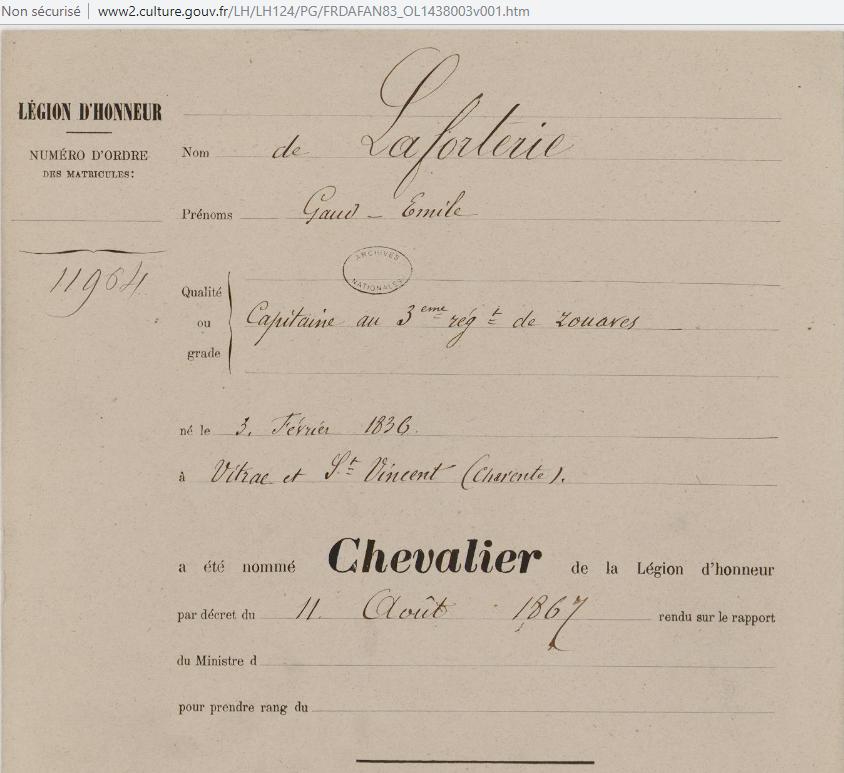 Non sécurisé | www2.culture.gouv.fr/LH/LH124/PG/FRDAFAN83_OL1438003v001.htm
LÉGION D'HONNEUR
NUMÉRO D'ORDRE
DES MATRICULES:
11964
Nom de Laforterie
Prénoms Gaud - Emile
ARCHIVES
NATIONALES
Qualité
ou
grade
Capitaine au 3eme régt de zouaves
né le 3. Février 1836.
à Vitrac et St Vincent (Charente).
a été nommé Chevalier de la Légion d'honneur
par décret du 11. Août 1867 rendu sur le rapport
du Ministre d
pour prendre rang du